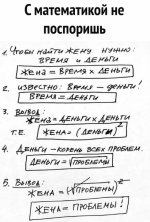 С математикой не
поспоришь
1. Чтобы найти жену нужно:
время и деньги
жена = время × деньги
2. известно: время — деньги!
время = деньги
3. вывод:
жена = деньги × деньги
т.е. жена = (деньги)²
4. деньги — корень всех проблем.
деньги = √проблемы
5. вывод:
жена = (√проблемы)²
жена = проблемы!